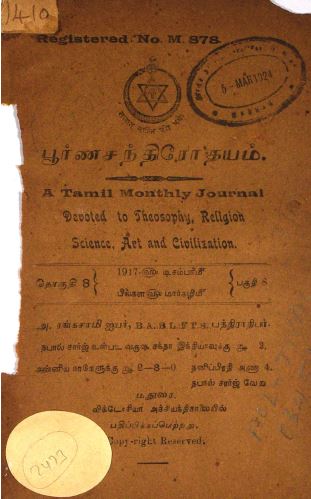 1410
Registered No. M. 878.
5 - MAR 1924
பூர்ணசந்திரோதயம்.
A Tamil Monthly Journal
Devoted to Theosophy, Religion
Science, Art and Civilization.
தொகுதி 8
1917-ஹு டிசம்பர்மீ
பிங்கள ஹு மார்கழிமீ
பகுதி 8
அ. ரங்கசாமி ஐயர், B.A., B.L., F.T.S., பத்திராதிபர்.
தபால் சார்ஜ் உள்பட வருஷ சந்தா இந்தியாவுக்கு ரூ 2.
அன்னிய நாடுகளுக்கு ரூ 2-8-0 தனிப்பிரதி அணா 4.
தபால் சார்ஜ் வேறு
மதுரை,
விக்டோரியா அச்சியந்திரசாலையில்
பதிப்பிக்கப்பெற்றது.
Copy-right Reserved.
2473